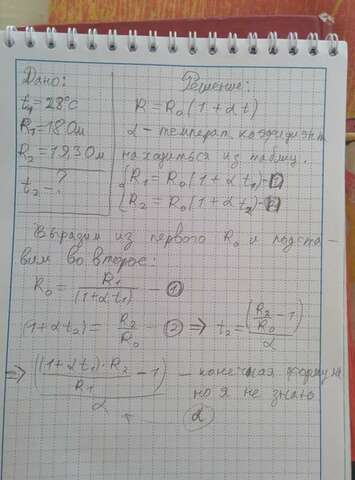 Дано:
t₁=28°C
R₁=18Ом
R₂=19,3Ом
t₂-?
Решение:
R=R₀(1+αt)
α-температ. коэффициент
находиться из таблиц.
R₁=R₀(1+αt₁)-①
R₂=R₀(1+αt₂)-②
Выразим из первого R₀ и подста-
вим во второе:
R₀=R₁/(1+αt₁) -①
(1+αt₂)=R₂/R₀ -② ⇒ t₂=(R₂/R₀-1)/α
⇒ ((1+αt₁)·R₂/R₁-1)/α - конечная формула
но я не знаю
α